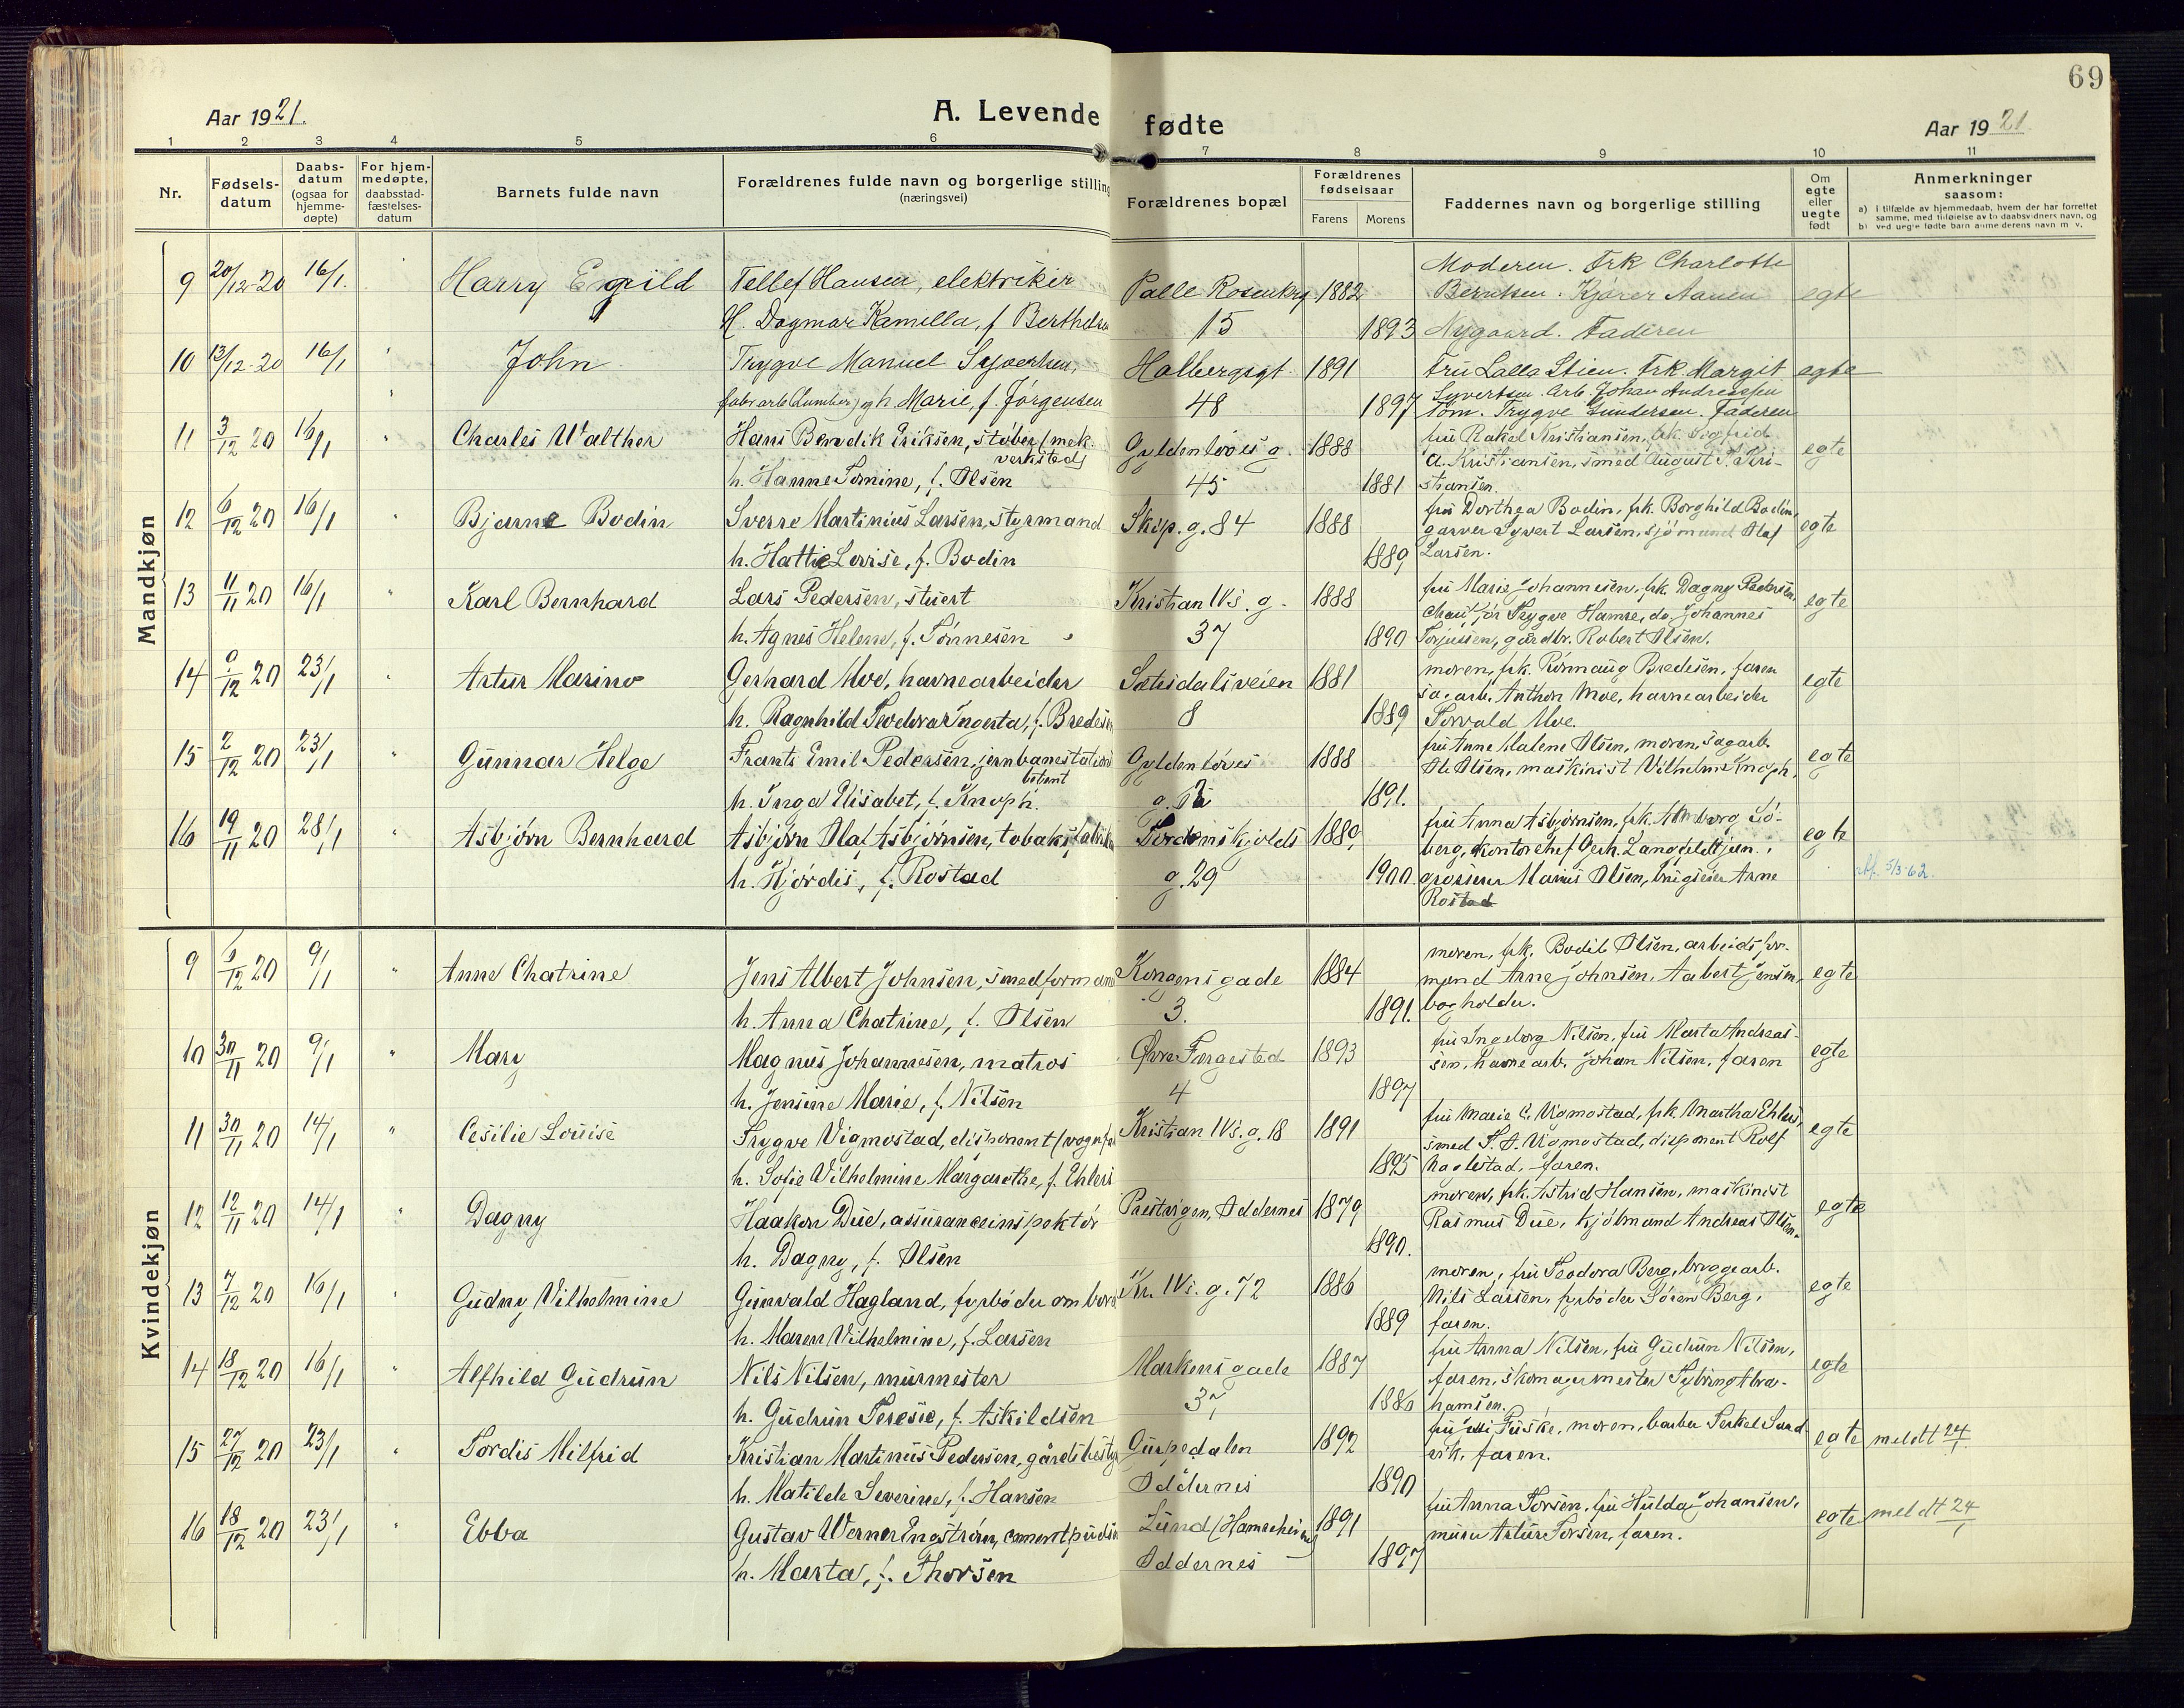 69
Aar 1921.
A. Levende fødte
Aar 1921
1 2 3 4 5 6 7 8 9 10 11
Nr.
Fødsels-
datum
Daabs-
datum
(ogsaa for
hjemme-
døpte)
For hjem-
medøpte,
daabsstad-
fæstelses-
datum
Barnets fulde navn
Forældrenes fulde navn og borgerlige stilling
(næringsvei)
Forældrenes bopæl
Forældrenes
fødselsaar
Farens Morens
Faddernes navn og borgerlige stilling
Om
egte
eller
uegte
født
Anmerkninger
saasom:
a) i tilfælde av hjemmedaab, hvem der har forrettet
samme, med tilføielse av to daabsvidners navn, og
b) ved uegte fødte barn anmelderens navn m. v.
Mandkjøn
9 20/12-20 16/1. Harry Engild Tellef Hansen, elektriker Palle Rosenkrg 1882 Moderen. Frk Charlotte
Berntsen. Kjører Aanen egte
H. Dagmar Kamilla, f Berthelsen 15 1893 Nygaard. Faderen
10 13/12-20 16/1 " John Trygve Manuel Syvertsen, Holbergsgt. 1891 Fru Lalla Stien. Frk. Margit egte
fabr arb (Lumber) og h. Marie, f. Jørgensen 48 1897 Syvertsen. Arb. Johan Andreassen
Tøm. Trygve Gundersen. Faderen
11 3/12 20 16/1 " Charles Walther Hans Benedik Eriksen, støber (mek. Gyldenløves g. 1888 fru Rakel Kristiansen, frk. Sigfrid egte
verksted)
A. Kristiansen, smed August T. Kri-
h. Hanne Tomine, f. Olsen 45 1881 stiansen.
12 6/12 20 16/1 " Bjarne Bodin Sverre Martinius Larsen, styrmand Skip. g. 84 1888 fru Dorthea Bodin, frk. Borghild Bodin, egte
garver Syvert Larsen, sjømand Olaf
h. Hattie Lovise, f. Bodin 1889 Larsen.
13 11/11 20 16/1 " Karl Bernhard Lars Pedersen, stuert Kristian IVs. g. 1888 fru Marie Johannesen, frk. Dagny Pedersen, egte
chauffør Trygve Hamre, do Johannes
h. Agnes Helene, f. Tønnesen 37 1890 Torjussen, gårdbr. Robert Olsen.
14 9/12 20 23/1 " Artur Marino Gerhard Moe, havnearbeider Sætesdalsveien 1881 moren, frk. Rønnaug Bredesen, faren egte
sagarb. Anthon Moe, havnearbeider
h. Ragnhild Teodora Ingerta, f. Bredesen 8 1889 Torvald Moe.
15 2/12 20 23/1 " Gunnar Helge Frants Emil Pedersen, jernbanestation Gyldenløves 1888 fru Anne Malene Olsen, moren, sagarb. egte
Ole Olsen, maskinist Vilhelm Knoph,
h. Inga Elisabet, f. Knoph. g. 1891.
16 19/11 20 28/1 " Asbjørn Bernhard Asbjørn Olaf Asbjørnsen, tobaksfabrik Tordenskjolds 1889 fru Anna Asbjørnsen, frk. Almborg Sø- egte
berg, kontorchef Gerh. Langfeldt jun.,
h. Hjørdis, f. Rostad g. 29 1900 grosserer Marius Olsen, brugseier Arne
Rostad
5/3-62.
Kvindekjøn
9 6/12 20 9/1 " Anne Chatrine Jens Albert Johnsen, smedformand Kongensgade 1884 moren, frk. Bodil Olsen, arbeidsfor- egte
mand Arne Johnsen, Aabert Jensen,
h. Anna Chatrine, f. Olsen 3. 1891. bogholder.
10 30/11 20 9/1 " Mary Magnus Johannesen, matros Øvre Færgested 1893 fru Ingeborg Nilsen, fru Marta Andreas- egte
sen, havnearb. Johan Nilsen, faren
h. Jensine Marie, f. Nilsen 4 1897
11 30/11 20 14/1 " Cesilie Louise Trygve Vigmostad, disponent (vognfa Kristian IVs. g. 18 1891 fru Marie C. Vigmostad, frk. Martha Ehlers, egte
smed T. A. Vigmostad, disponent Rolf
h. Sofie Vilhelmine Margarethe, f. Ehlers 1895 Haglestad, faren.
12 12/11 20 14/1 " Dagny Haakon Due, assuranceinspektør Prestvigen, Oddernes 1879 moren, frk. Astrid Hansen, maskinist egte
Rasmus Due, kjølmand Andreas Olsen.
h. Dagny, f. Olsen 1890.
13 7/12 20 16/1 " Gudny Vilhelmine Gunvald Hagland, fyrbøder ombord Kr. IVs. g. 72 1886 moren, fru Teodora Berg, bryggearb. egte
Nils Larsen, fyrbøder Søren Berg,
h. Maren Vilhelmine, f. Larsen 1889 faren.
14 18/12 20 16/1 " Alfhild Gudrun Nils Nilsen, murmester Markensgade 1887 fru Anna Nilsen, fru Gudrun Nilsen, egte
faren, skomagermester Abra-
h. Gudrun Teresie, f. Askildsen 37 1886 hamsen.
15 27/12 20 23/1 " Tordis Milfrid Kristian Martinius Pedersen, gårdsbesty Gurpedalen 1892 fru Fuske, moren, barber Terkel Sand- egte meldt 24/1
vik, faren.
h. Matilde Severine, f. Hansen Oddernes 1890
16 18/12 20 23/1 " Ebba Gustav Werner Engstrøm, cementpudser Lund (Hamreheim) 1891 fru Anna Torsen, fru Hulda Johansen, egte meldt 24/1
murer Artur Torsen, faren.
h. Marta, f. Thorsen Oddernes 1897